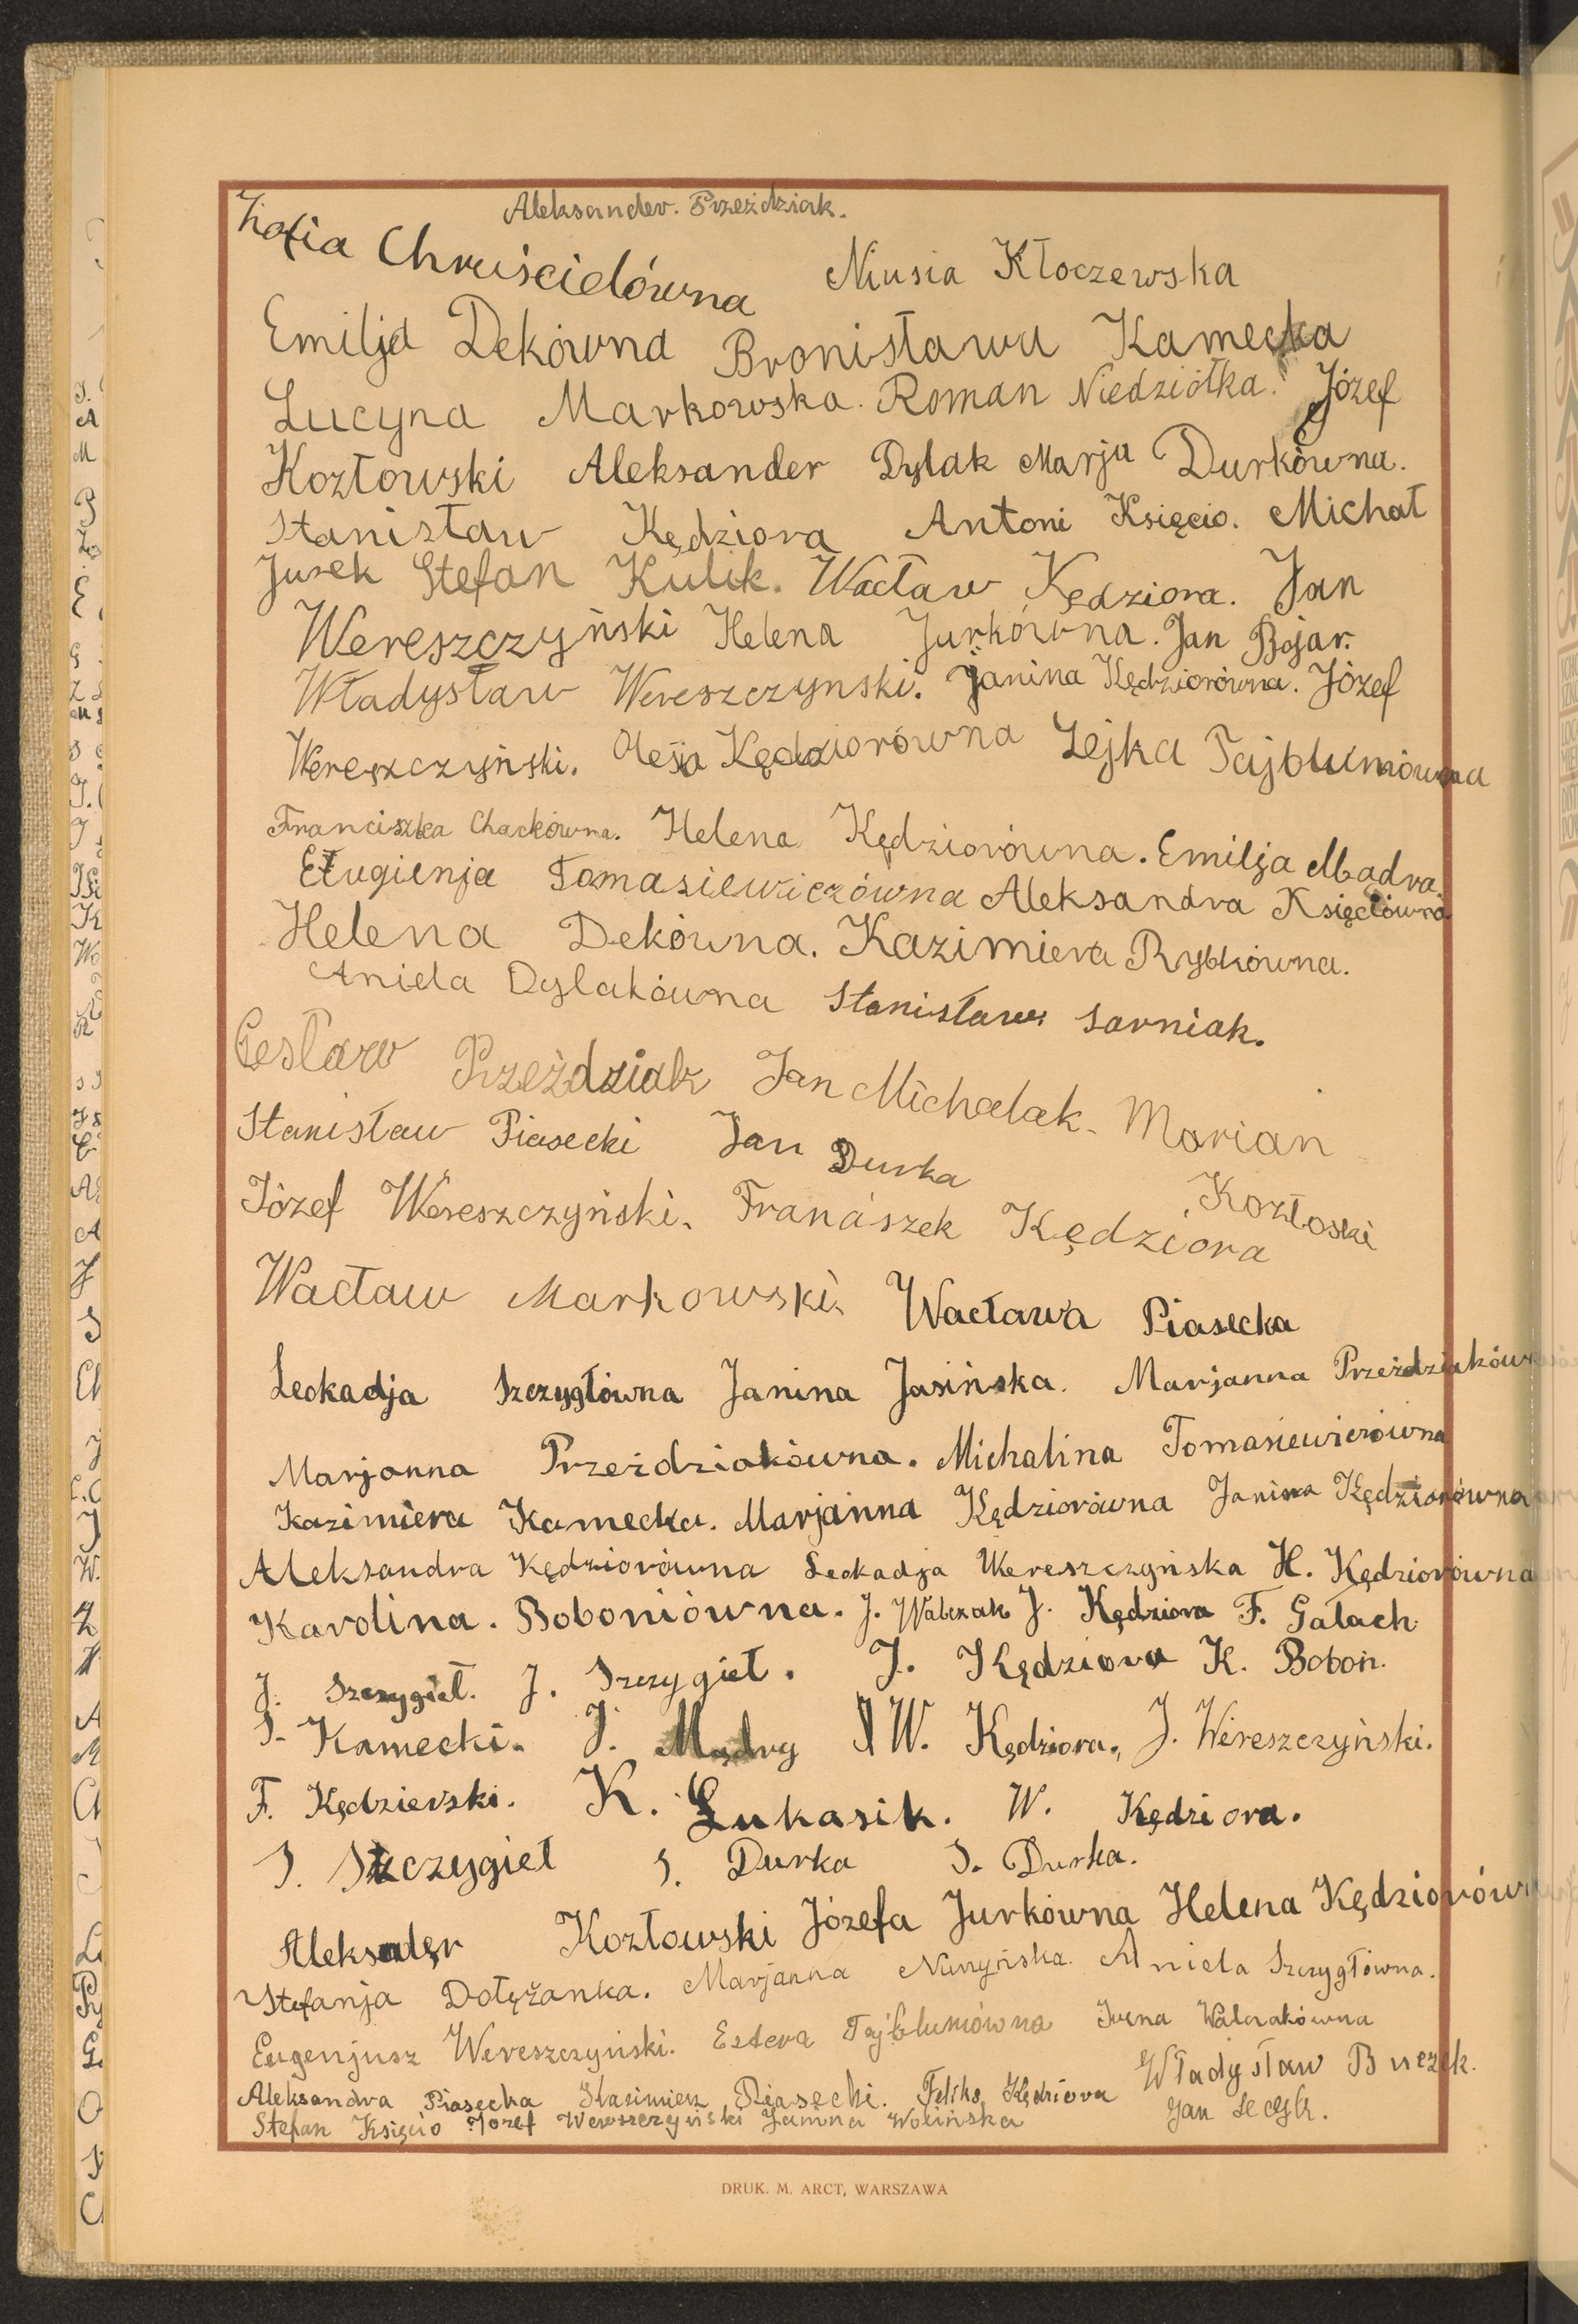 Aleksander. Przeździak.
Zofia Chruścielówna Niusia Kłoczewska
Emilja Dekówna Bronisława Kamecka
Lucyna Markowska. Roman Niedziółka. Józef
Kozłowski Aleksander Dylak Marja Durkówna.
Stanisław Kędziora Antoni Księcio. Michał
Jurek Stefan Kulik. Wacław Kędziora. Jan
Wereszczyński Helena Jurkówna. Jan Bojar.
Władysław Wereszczynski. Janina Kędziorówna. Józef
Wereszczyński. Olesia Kędziorówna Zejka Tajblumówna
Franciszka Chackówna. Helena Kędziorówna. Emilja Mądra.
Eugienja Tomasiewiczówna Aleksandra Księciówna
Helena Dekówna. Kazimiera Rybkówna.
Aniela Dylakówna Stanisław Sarniak.
Cesław Przeździak Jan Michalak. Marian
Stanisław Piasecki Jan Durka
Kozłoski
Józef Wereszczyński. Franciszek Kędziora
Wacław Markowski. Wacława Piasecka
Leokadja Szczygłówna Janina Jasińska. Marjanna Przeździaków
Marjanna Przeździakówna. Michalina Tomasiewiczówna
Kazimiera Kamecka. Marjanna Kędziorówna Janina Kędziorówna
Aleksandra Kędziorówna Leokadja Wereszczyńska H. Kędziorówna
Karolina. Boboniówna. J. Walczak J. Kędziora F. Gałach
J. Szczygieł. J. Szczygieł. J. Kędziora K. Boboń.
S. Kamecki. J. Mądry W. Kędziora. J. Wereszczyński.
F. Kędzierski. K. Łukasik. W. Kędziora.
S. Szczygieł S. Durka S. Durka.
Aleksander Kozłowski Józefa Jurkówna Helena Kędziorów
Stefanja Dołężanka. Marjanna Niezyńska. Aniela Szczygłówna.
Eugenjusz Wereszczyński. Estera Tajblumówna Irena Walczakówna
Aleksandra Piasecka Kazimierz Piasecki. Feliks Kędziora Władysław Buczek.
Stefan Księcio Józef Wereszczyński Janina Wolińska Jan
DRUK. M. ARCT, WARSZAWA